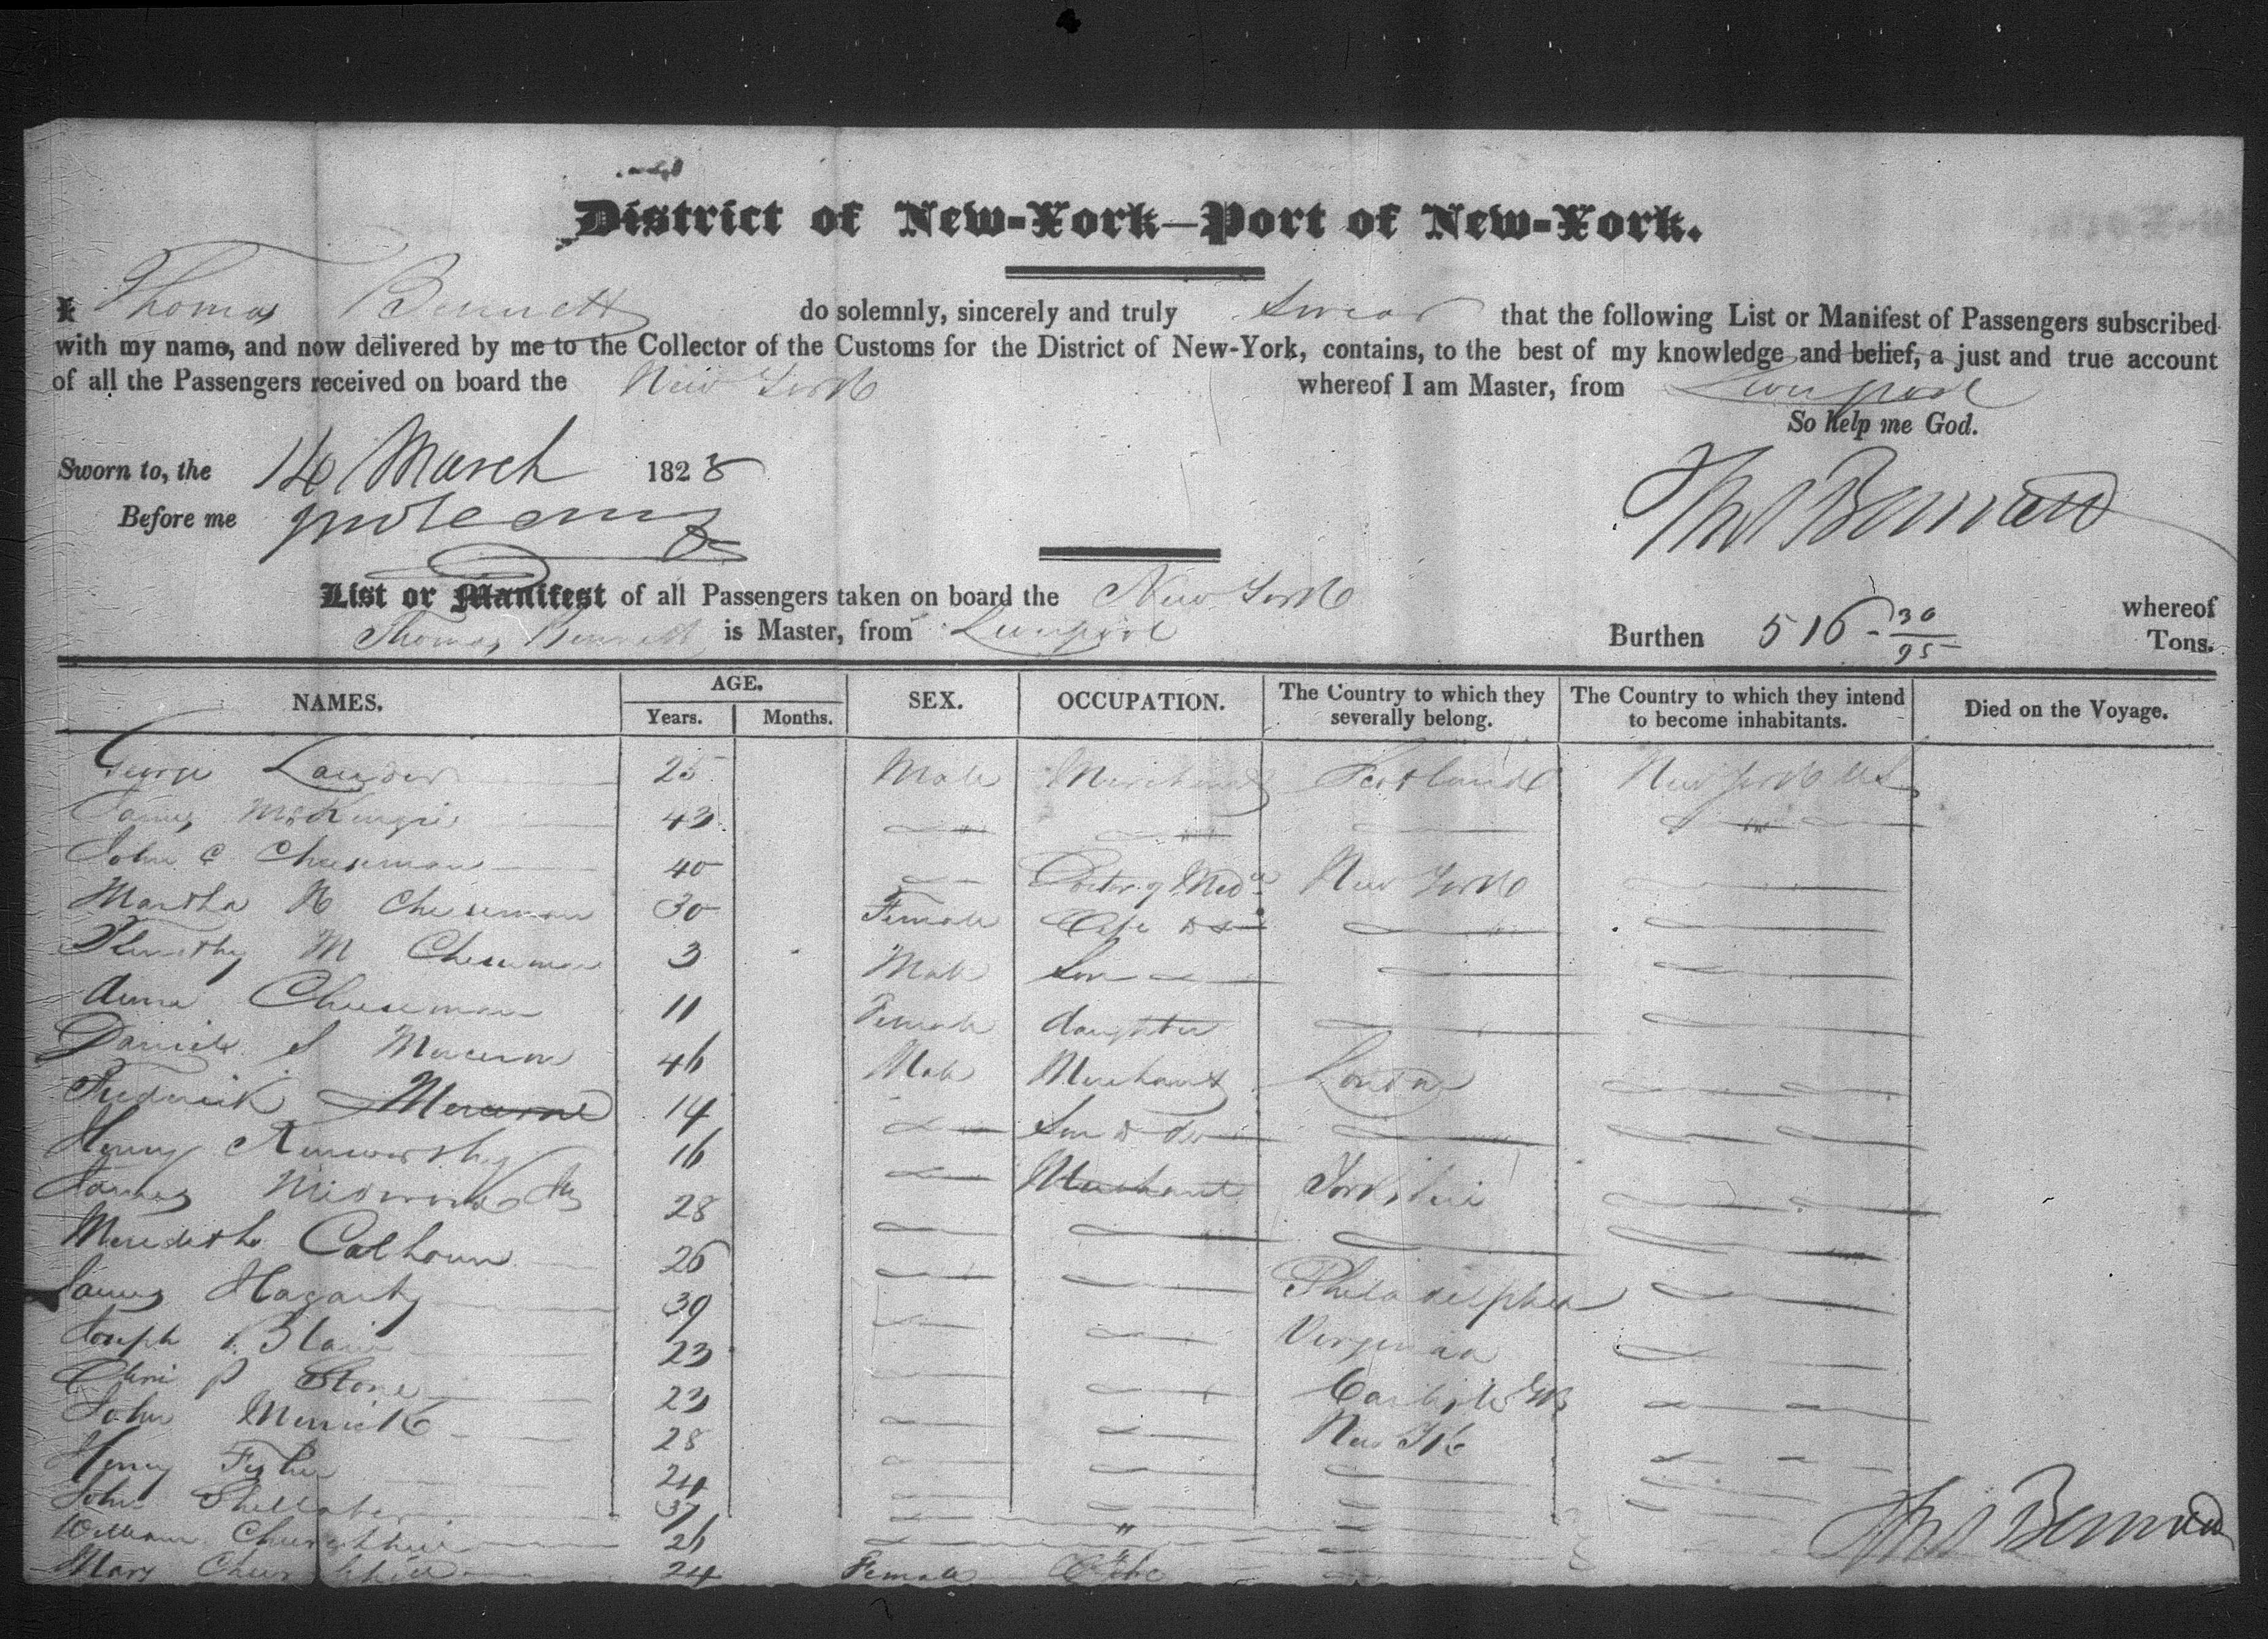 District of New-York—Port of New-York.
I Thomas Bennett do solemnly, sincerely and truly Swear that the following List or Manifest of Passengers subscribed
with my name, and now delivered by me to the Collector of the Customs for the District of New-York, contains, to the best of my knowledge and belief, a just and true account
of all the Passengers received on board the New York whereof I am Master, from Liverpool
So help me God.
Sworn to, the 14 March 1828
Before me
Thos Bennett
List or Manifest of all Passengers taken on board the New York whereof
Thomas Bennett is Master, from Liverpool Burthen 516 30/95 Tons.
NAMES. AGE. Years. Months. SEX. OCCUPATION. The Country to which they severally belong. The Country to which they intend to become inhabitants. Died on the Voyage.
George Lauder 25 Male Merchant Scotland New York US
James McKenzie 43
John C Cheesman 40 Doctor of Med New York
Martha Cheeseman 30 Female Wife
Timothy M Cheeseman 3 Male Son
Anna Cheeseman 11 Female daughter
Daniel S 46 Male Merchant London
Frederick 14 Son
Henry Kenworthy 16 Merchant Yorkshire
James 28
Meredith Calhoun 26 Philadelphia
James Hagarty 39 Virginia
Joseph Blain 23 Carlisle GB
P Stone 23 New Yk
John Merrick 28
Henry Fisher 24
John 37
William Churchill 26
Mary Churchill 24 Female Wife
Thos Bennett